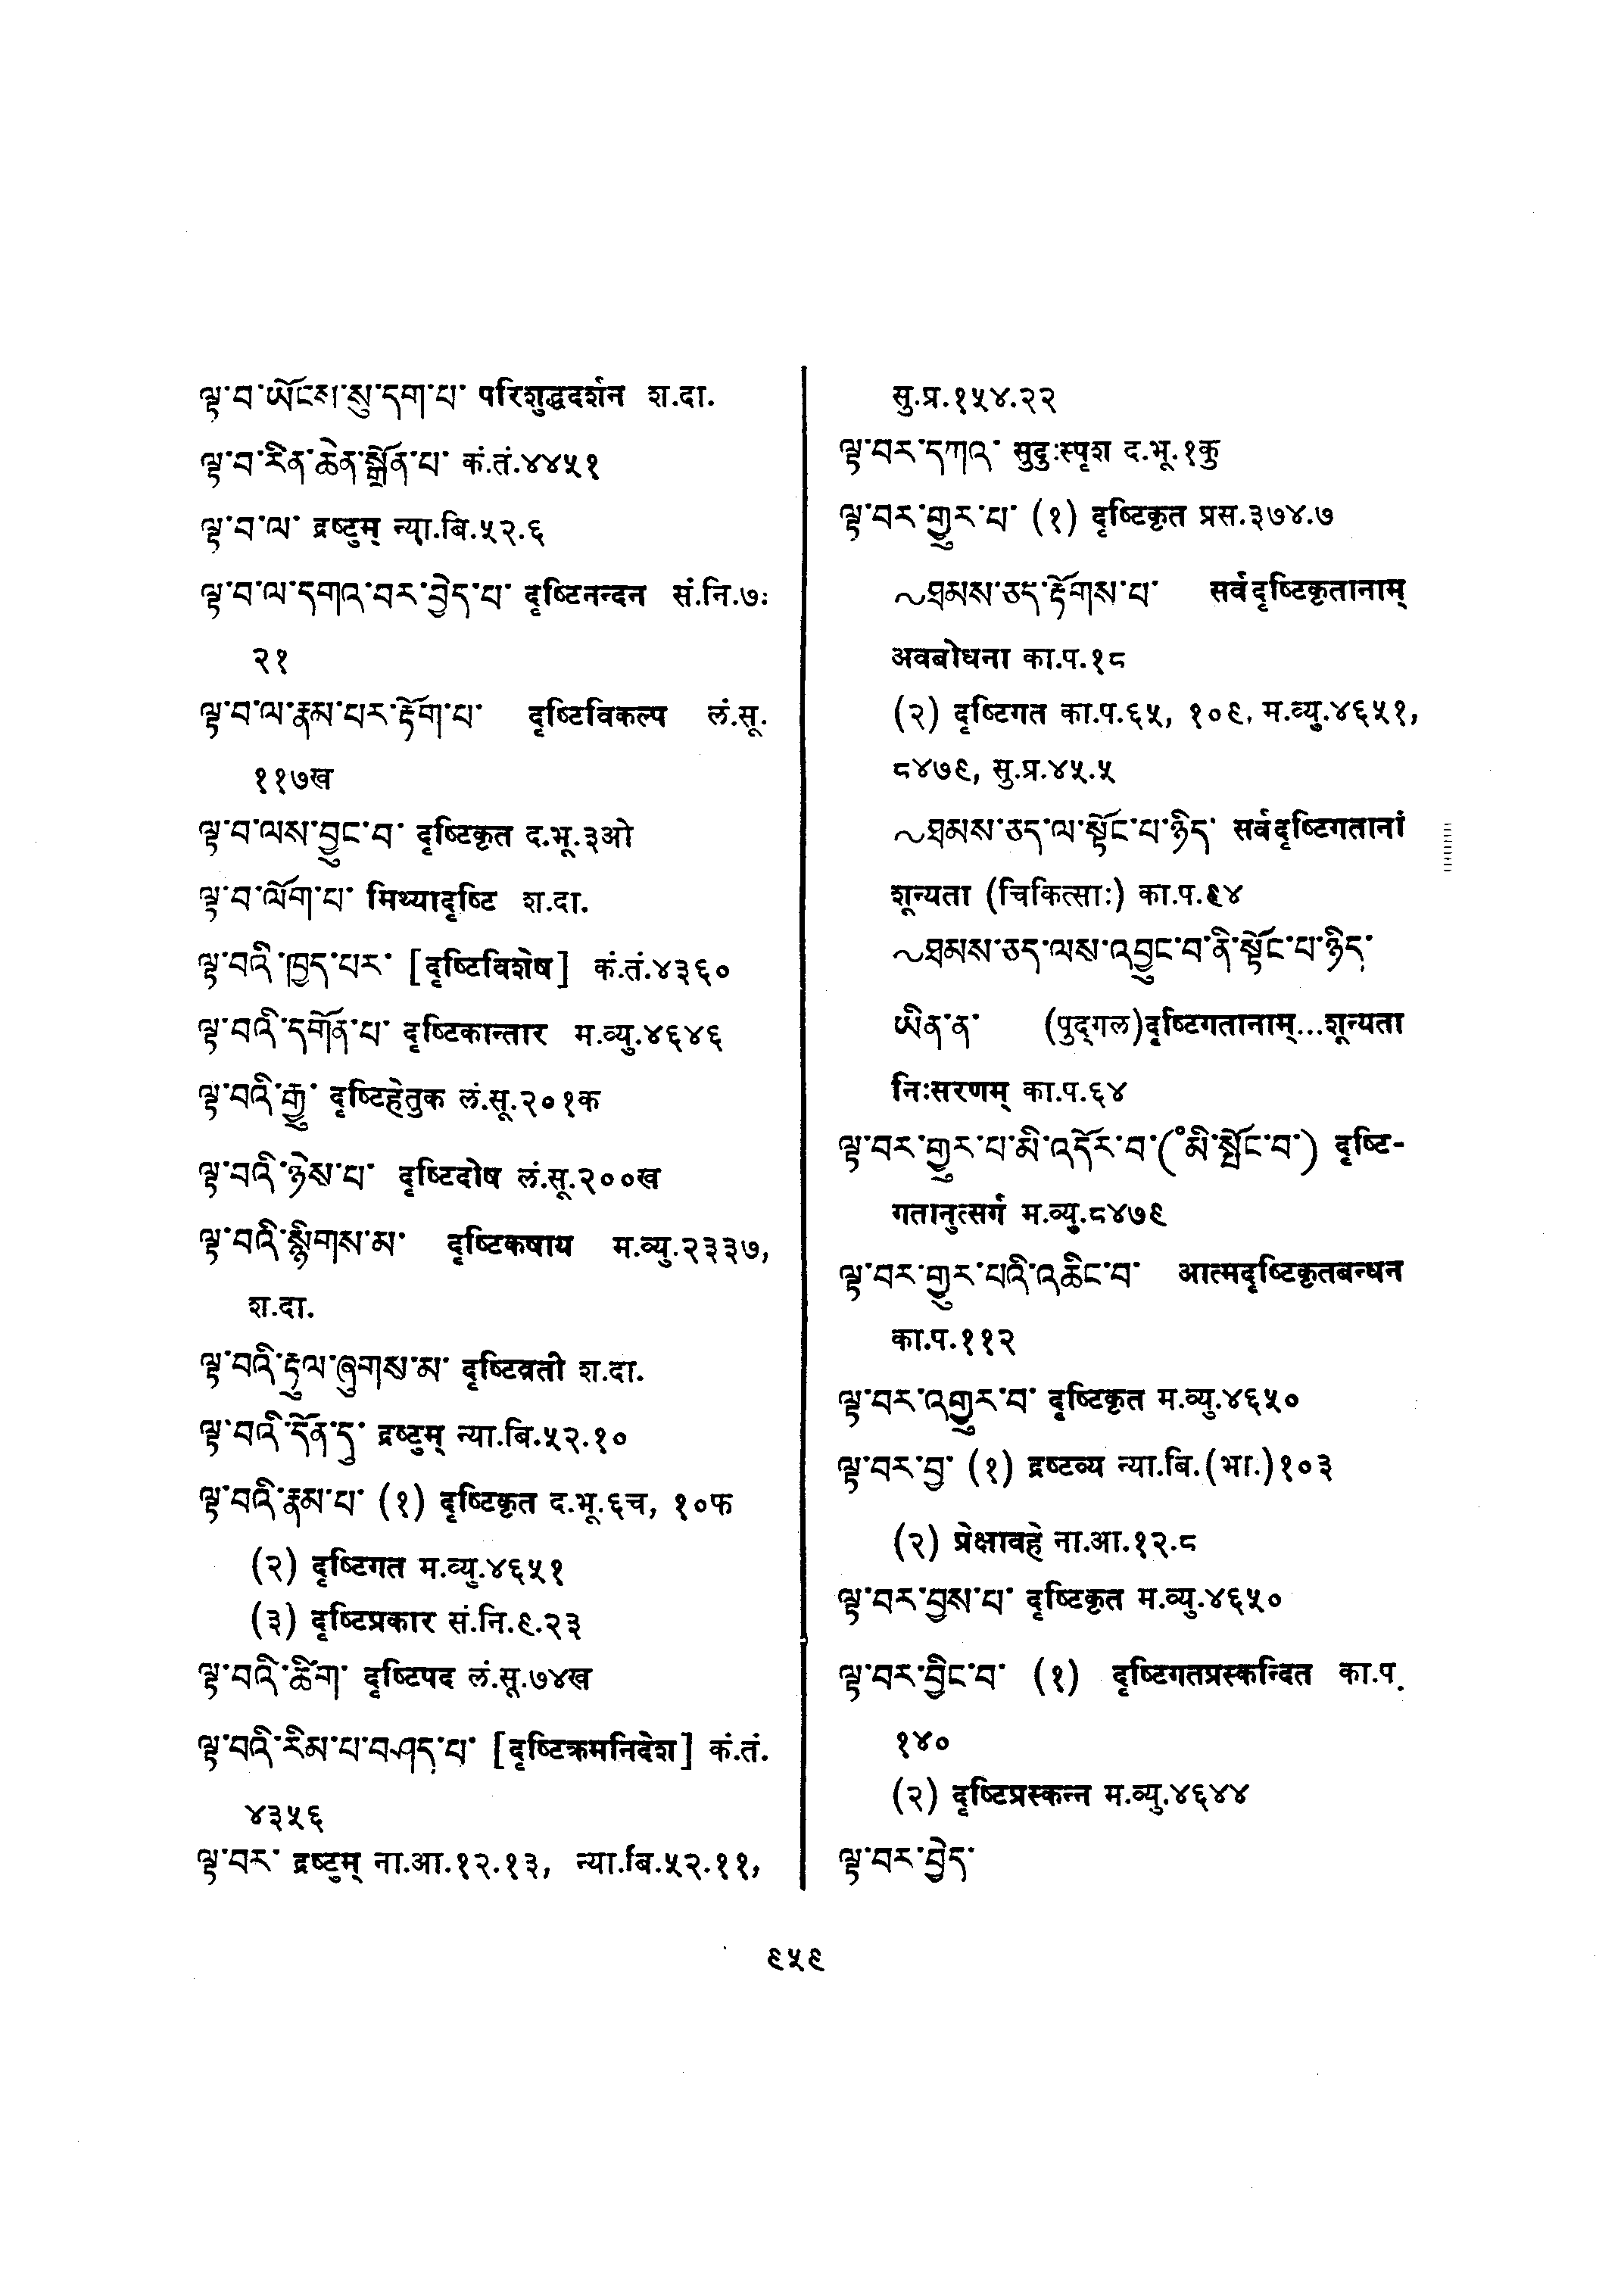 ལྟ་བ་ཡོངས་སུ་དག་པ་ परिशुद्धदर्शन श.दा.
ལྟ་བ་རིན་ཆེན་སྒྲོན་པ་ कं.तं.४४५१
ལྟ་བ་ལ་ द्रष्टुम् न्या.बि.५२.६
ལྟ་བ་ལ་དགའ་བར་བྱེད་པ་ दृष्टिनन्दन सं.नि.७ः
२१
ལྟ་བ་ལ་རྣམ་པར་རྟོག་པ་ दृष्टिविकल्प लं.सू.
११७ख
ལྟ་བ་ལས་བྱུང་བ་ दृष्टिकृत द.भू.३ओ
ལྟ་བ་ལོག་པ་ मिथ्यादृष्टि श.दा.
ལྟ་བའི་ཁྱད་པར་ [दृष्टिविशेष] कं.तं.४३६०
ལྟ་བའི་དགོན་པ་ दृष्टिकान्तार म.व्यु.४६४६
ལྟ་བའི་རྒྱུ་ दृष्टिहेतुक लं.सू.२०१क
ལྟ་བའི་ཉེས་པ་ दृष्टिदोष लं.सू.२००ख
ལྟ་བའི་སྙིགས་མ་ दृष्टिकषाय म.व्यु.२३३७,
श.दा.
ལྟ་བའི་རྟུལ་ཞུགས་མ་ दृष्टिव्रती श.दा.
ལྟ་བའི་དོན་དུ་ द्रष्टुम् न्या.बि.५२.१०
ལྟ་བའི་རྣམ་པ་ (१) दृष्टिकृत द.भू.६च, १०फ
(२) दृष्टिगत म.व्यु.४६५१
(३) दृष्टिप्रकार सं.नि.९.२३
ལྟ་བའི་ཚིག་ दृष्टिपद लं.सू.७४ख
ལྟ་བའི་རིམ་པ་བཤད་པ་ [दृष्टिक्रमनिदेश] कं.तं.
४३५६
ལྟ་བར་ द्रष्टुम् ना.आ.१२.१३, न्या.बि.५२.११,
सु.प्र.१५४.२२
ལྟ་བར་དཀའ་ सुदुःस्पृश द.भू.१कु
ལྟ་བར་གྱུར་པ་ (१) दृष्टिकृत प्रस.३७४.७
~ཐམས་ཅད་རྟོགས་པ་ सर्वदृष्टिकृतानाम्
अवबोधना का.प.१८
(२) दृष्टिगत का.प.६५, १०९, म.व्यु.४६५१,
८४७९, सु.प्र.४५.५
~ཐམས་ཅད་ལ་སྟོང་པ་ཉིད་ सर्वदृष्टिगतानां
शून्यता (चिकित्साः) का.प.९४
~ཐམས་ཅད་ལས་འབྱུང་བ་ནི་སྟོང་པ་ཉིད་
ཡིན་ན་ (पुद्गल)दृष्टिगतानाम्...शून्यता
निःसरणम् का.प.६४
ལྟ་བར་གྱུར་པ་མི་འདོར་བ་(°མི་སྤོང་བ་) दृष्टि-
गतानुत्सर्ग म.व्यु.८४७९
ལྟ་བར་གྱུར་པའི་འཆིང་བ་ आत्मदृष्टिकृतबन्धन
का.प.११२
ལྟ་བར་འགྱུར་བ་ दृष्टिकृत म.व्यु.४६५०
ལྟ་བར་བྱ་ (१) द्रष्टव्य न्या.बि.(भा.)१०३
(२) प्रेक्षावहे ना.आ.१२.८
ལྟ་བར་བྱས་པ་ दृष्टिकृत म.व्यु.४६५०
ལྟ་བར་བྱིང་བ་ (१) दृष्टिगतप्रस्कन्दित का.प.
१४०
(२) दृष्टिप्रस्कन्न म.व्यु.४६४४
ལྟ་བར་བྱེད་
९५९